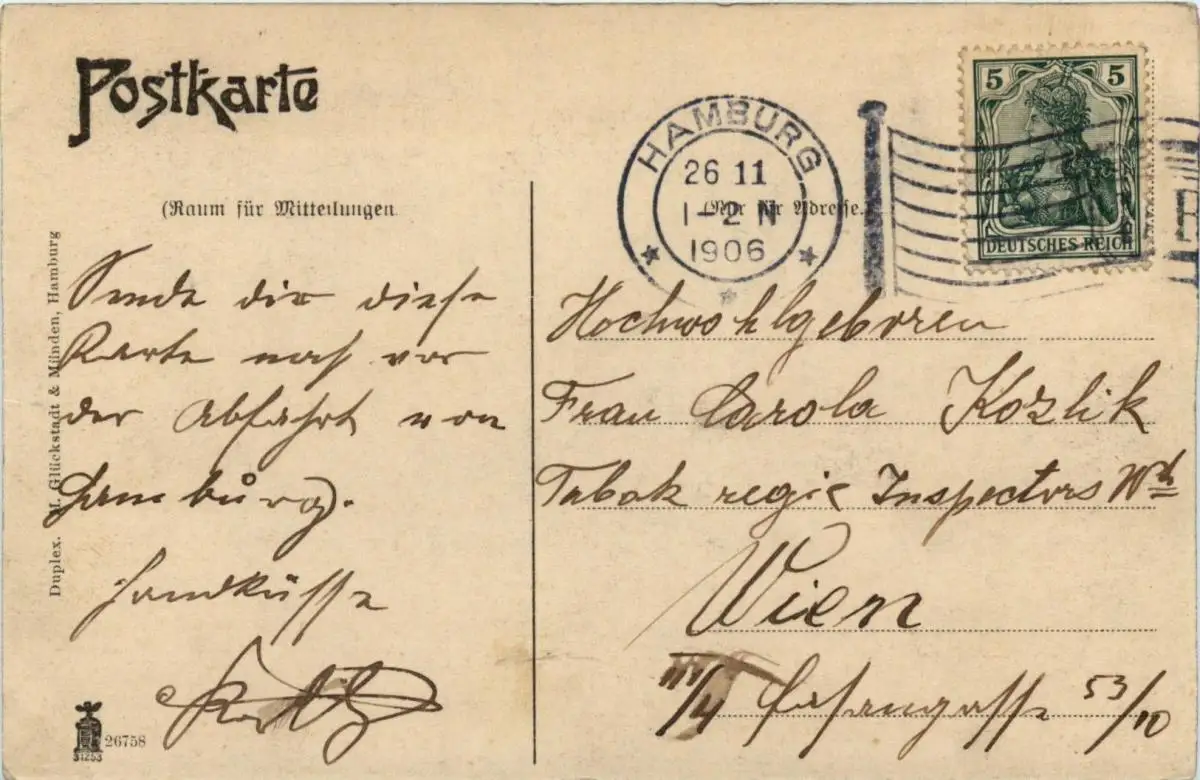 Postkarte
(Raum für Mitteilungen
Sende dir diese
Karte noch vor
der Abfahrt von
Hamburg.
Handküsse
Duplex. M. Glückstadt & Münden, Hamburg
31253
26758
HAMBURG
26 11
1-2 N
1906
5 5
DEUTSCHES REICH
(Nur für Adresse.
Hochwohlgeboren
Frau Carola Kozlik
Tabak regie Inspectors
Wien
/4 Fasangasse 53/10